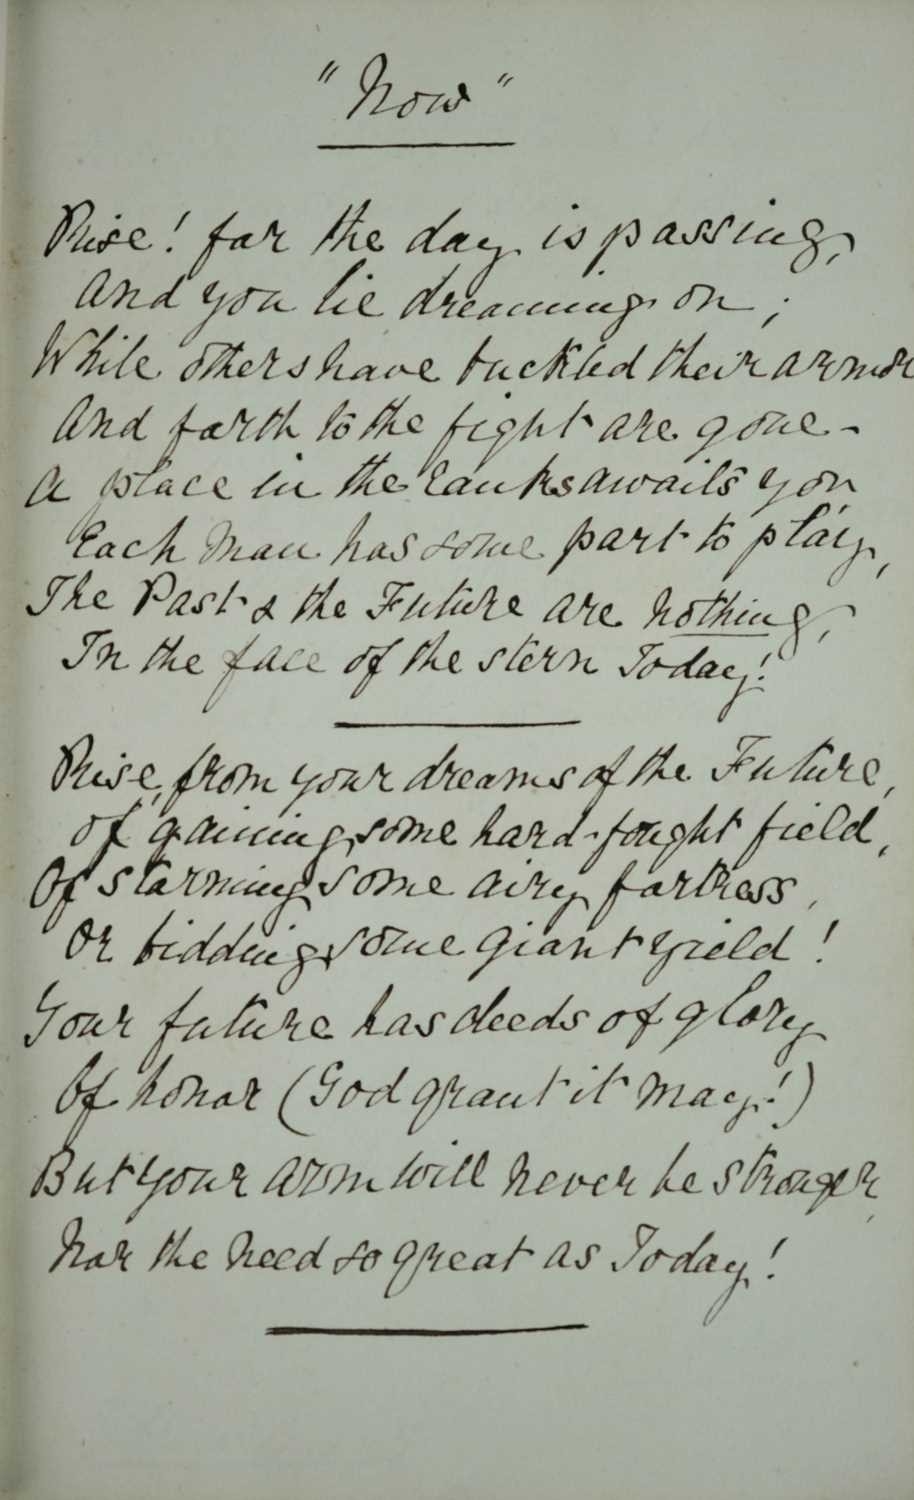 "Now"
Rise! for the day is passing,
And you lie dreaming on;
While others have buckled their armor
And forth to the fight are gone-
A place in the ranks awaits you
Each man has some part to play,
The Past & the Future are nothing,
In the face of the stern Today!
Rise, from your dreams of the Future,
Of gaining some hard-fought field,
Of storming some airy fortress,
Or bidding some giant yield!
Your future has deeds of glory
Of honor (God grant it may!)
But your arm will never be stronger,
Nor the need so great as Today!